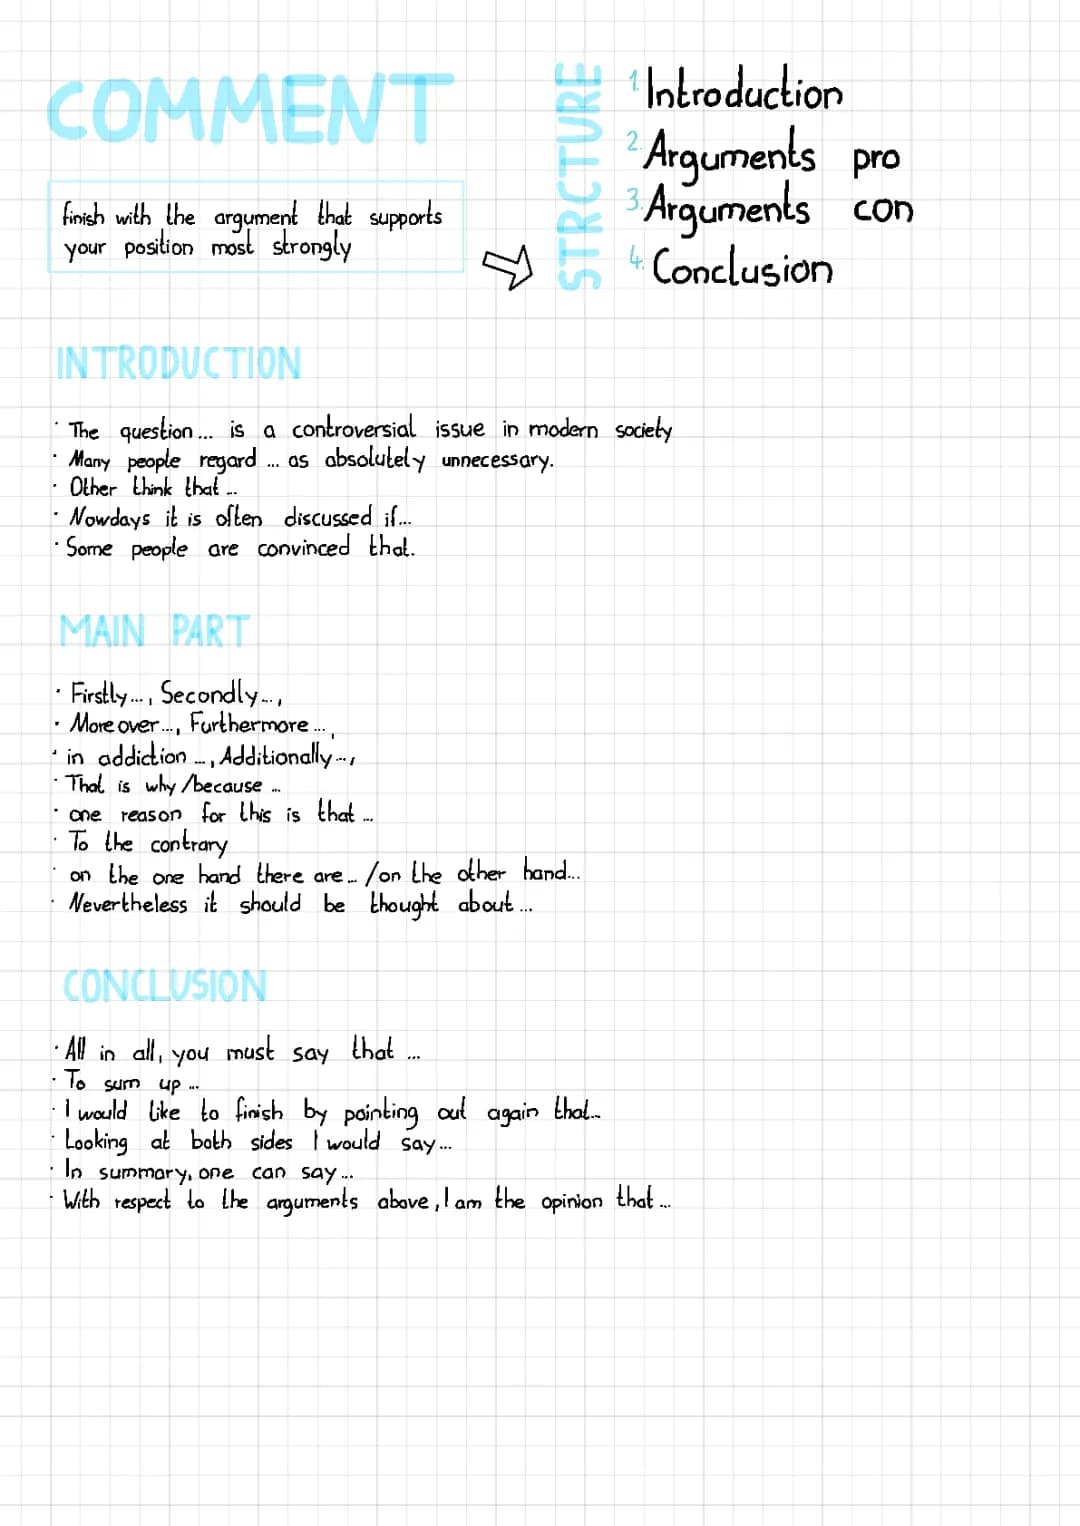 COMMENT
finish with the argument that supports
your position most strongly
STRCTURE
1. Introduction
2. Arguments pro
3. Arguments con
4. Conclusion
INTRODUCTION
· The question... is a controversial issue in modern society
· Many people regard ... as absolutely unnecessary.
· Other think that ...
· Nowdays it is often discussed if...
· Some people are convinced that.
MAIN PART
· Firstly..., Secondly...,
· More over..., Furthermore ...,
· in addiction ..., Additionally...,
· That is why /because ...
· one reason for this is that ...
· To the contrary
· on the one hand there are... /on the other hand...
· Nevertheless it should be thought about ...
CONCLUSION
· All in all, you must say that ...
· To sum up ...
· I would like to finish by pointing out again that...
· Looking at both sides I would say...
· In summary, one can say ...
· With respect to the arguments above, I am the opinion that ...